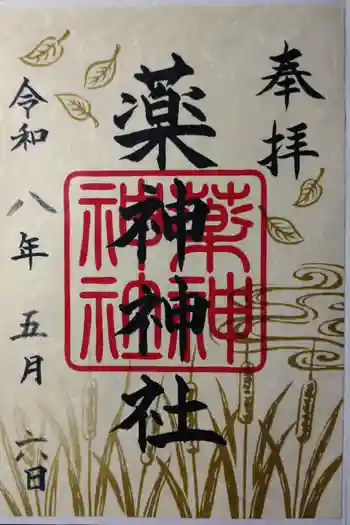 奉拝
薬神神社
薬神神社
令和八年五月六日